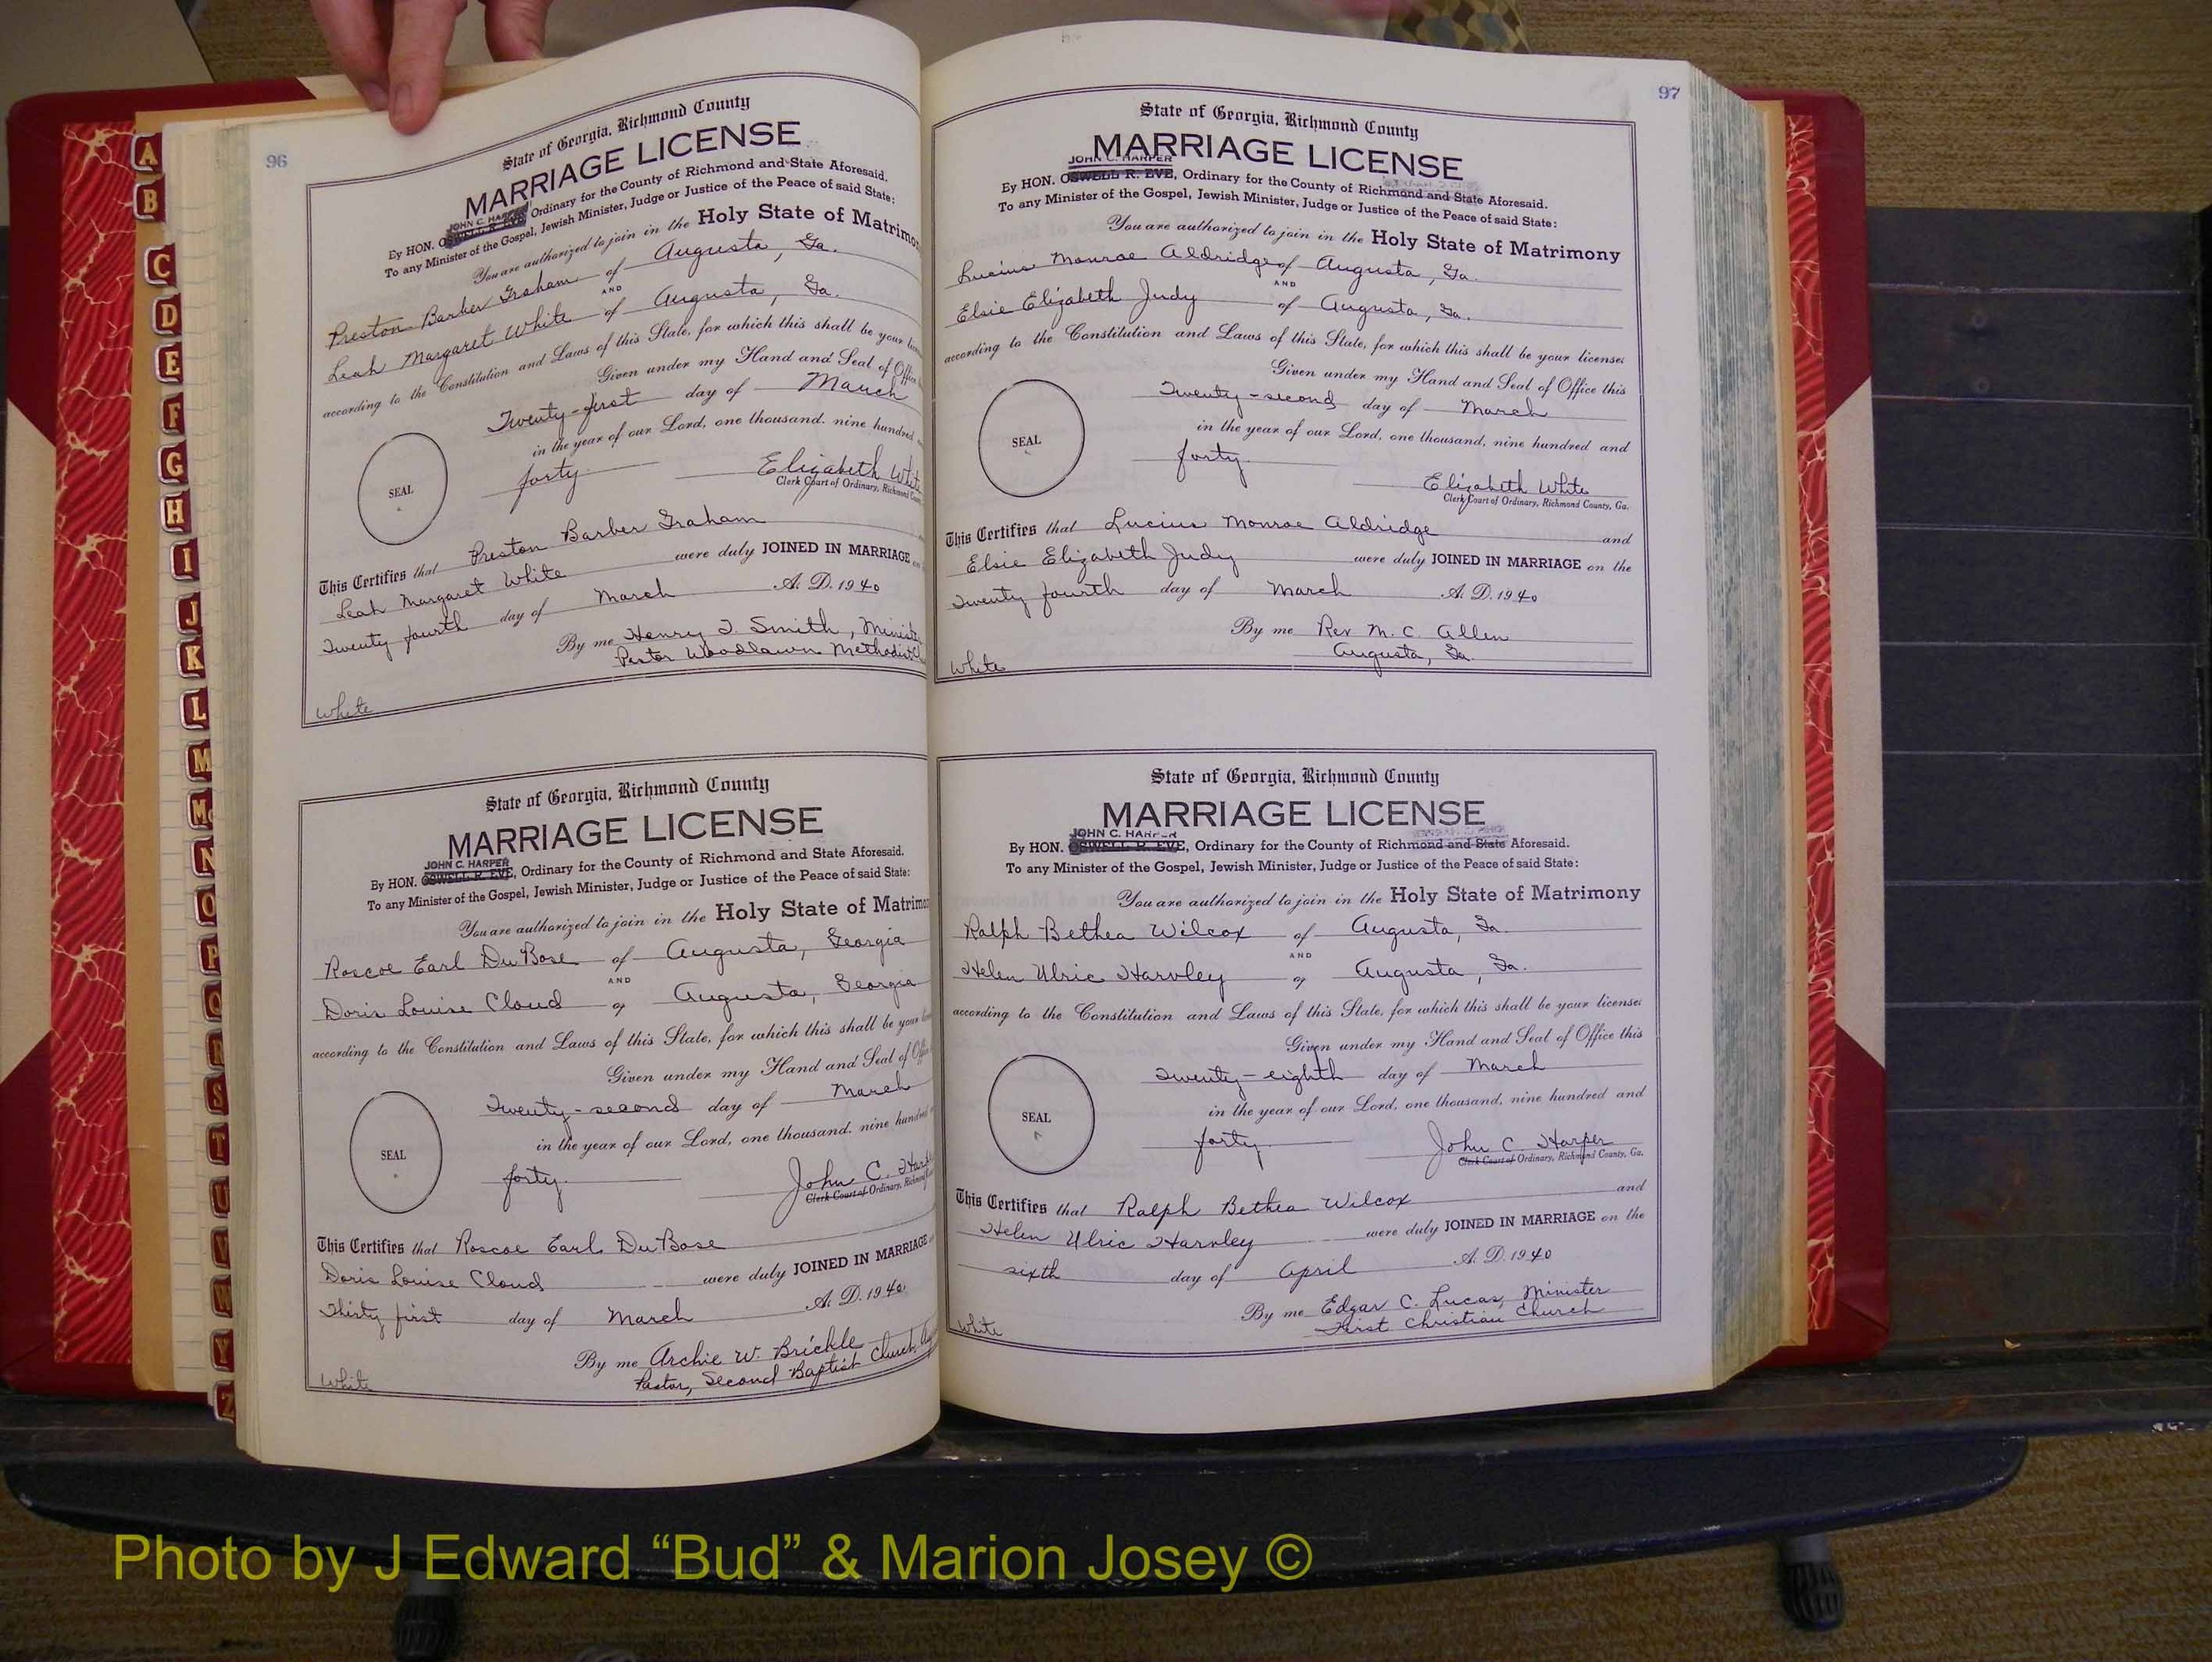 A
B
C
D
E
F
G
H
I
J
K
L
M
Mc
N
O
P
Q
R
S
T
U
V
W
Y
Z
96
State of Georgia, Richmond County
MARRIAGE LICENSE
JOHN C. HARPER
By HON. OSWELL R. EVE, Ordinary for the County of Richmond and State Aforesaid.
To any Minister of the Gospel, Jewish Minister, Judge or Justice of the Peace of said State:
You are authorized to join in the Holy State of Matrimo
Preston Barber Graham of Augusta, Ga.
AND
Leah Margaret White of Augusta, Ga.
according to the Constitution and Laws of this State, for which this shall be your
Given under my Hand and Seal of Office
Twenty-first day of March
in the year of our Lord, one thousand, nine hundred
forty
SEAL
Elizabeth White
Clerk Court of Ordinary, Richmond
This Certifies that Preston Barber Graham
Leah Margaret White were duly JOINED IN MARRIAGE
Twenty fourth day of March A. D. 1940
By me Henry J. Smith, Minist
Pastor Woodlawn Methodist
White
State of Georgia, Richmond County
MARRIAGE LICENSE
JOHN C. HARPER
By HON. OSWELL R. EVE, Ordinary for the County of Richmond and State Aforesaid.
To any Minister of the Gospel, Jewish Minister, Judge or Justice of the Peace of said State:
You are authorized to join in the Holy State of Matrimo
Roscoe Earl DuBose of Augusta, Georgia
AND
Doris Louise Cloud of Augusta, Georgia
according to the Constitution and Laws of this State, for which this shall be your
Given under my Hand and Seal of Offi
Twenty-second day of March
in the year of our Lord, one thousand, nine hundred
forty
SEAL
John C. Harp
Clerk Court of Ordinary, Richmond
This Certifies that Roscoe Earl DuBose
Doris Louise Cloud were duly JOINED IN MARRIAGE
Thirty first day of March A. D. 1940
By me Archie W. Brickle
Pastor, Second Baptist Church, Aug
White
97
State of Georgia, Richmond County
MARRIAGE LICENSE
JOHN C. HARPER
By HON. OSWELL R. EVE, Ordinary for the County of Richmond and State Aforesaid.
To any Minister of the Gospel, Jewish Minister, Judge or Justice of the Peace of said State:
You are authorized to join in the Holy State of Matrimony
Lucius Monroe Aldridge of Augusta, Ga.
AND
Elsie Elizabeth Judy of Augusta, Ga.
according to the Constitution and Laws of this State, for which this shall be your license:
Given under my Hand and Seal of Office this
Twenty-second day of March
in the year of our Lord, one thousand, nine hundred and
forty
SEAL
Elizabeth White
Clerk Court of Ordinary, Richmond County, Ga.
This Certifies that Lucius Monroe Aldridge and
Elsie Elizabeth Judy were duly JOINED IN MARRIAGE on the
Twenty fourth day of March A. D. 1940
By me Rev M. C. Allen
Augusta, Ga.
White
State of Georgia, Richmond County
MARRIAGE LICENSE
JOHN C. HARPER
By HON. OSWELL R. EVE, Ordinary for the County of Richmond and State Aforesaid.
To any Minister of the Gospel, Jewish Minister, Judge or Justice of the Peace of said State:
You are authorized to join in the Holy State of Matrimony
Ralph Bethea Wilcox of Augusta, Ga.
AND
Helen Ulric Harvley of Augusta, Ga.
according to the Constitution and Laws of this State, for which this shall be your license:
Given under my Hand and Seal of Office this
Twenty-eighth day of March
in the year of our Lord, one thousand, nine hundred and
forty
SEAL
John C. Harper
Clerk Court of Ordinary, Richmond County, Ga.
This Certifies that Ralph Bethea Wilcox and
Helen Ulric Harvley were duly JOINED IN MARRIAGE on the
sixth day of April A. D. 1940
By me Edgar C. Lucas, Minister
First Christian Church
White
Photo by J Edward “Bud” & Marion Josey ©